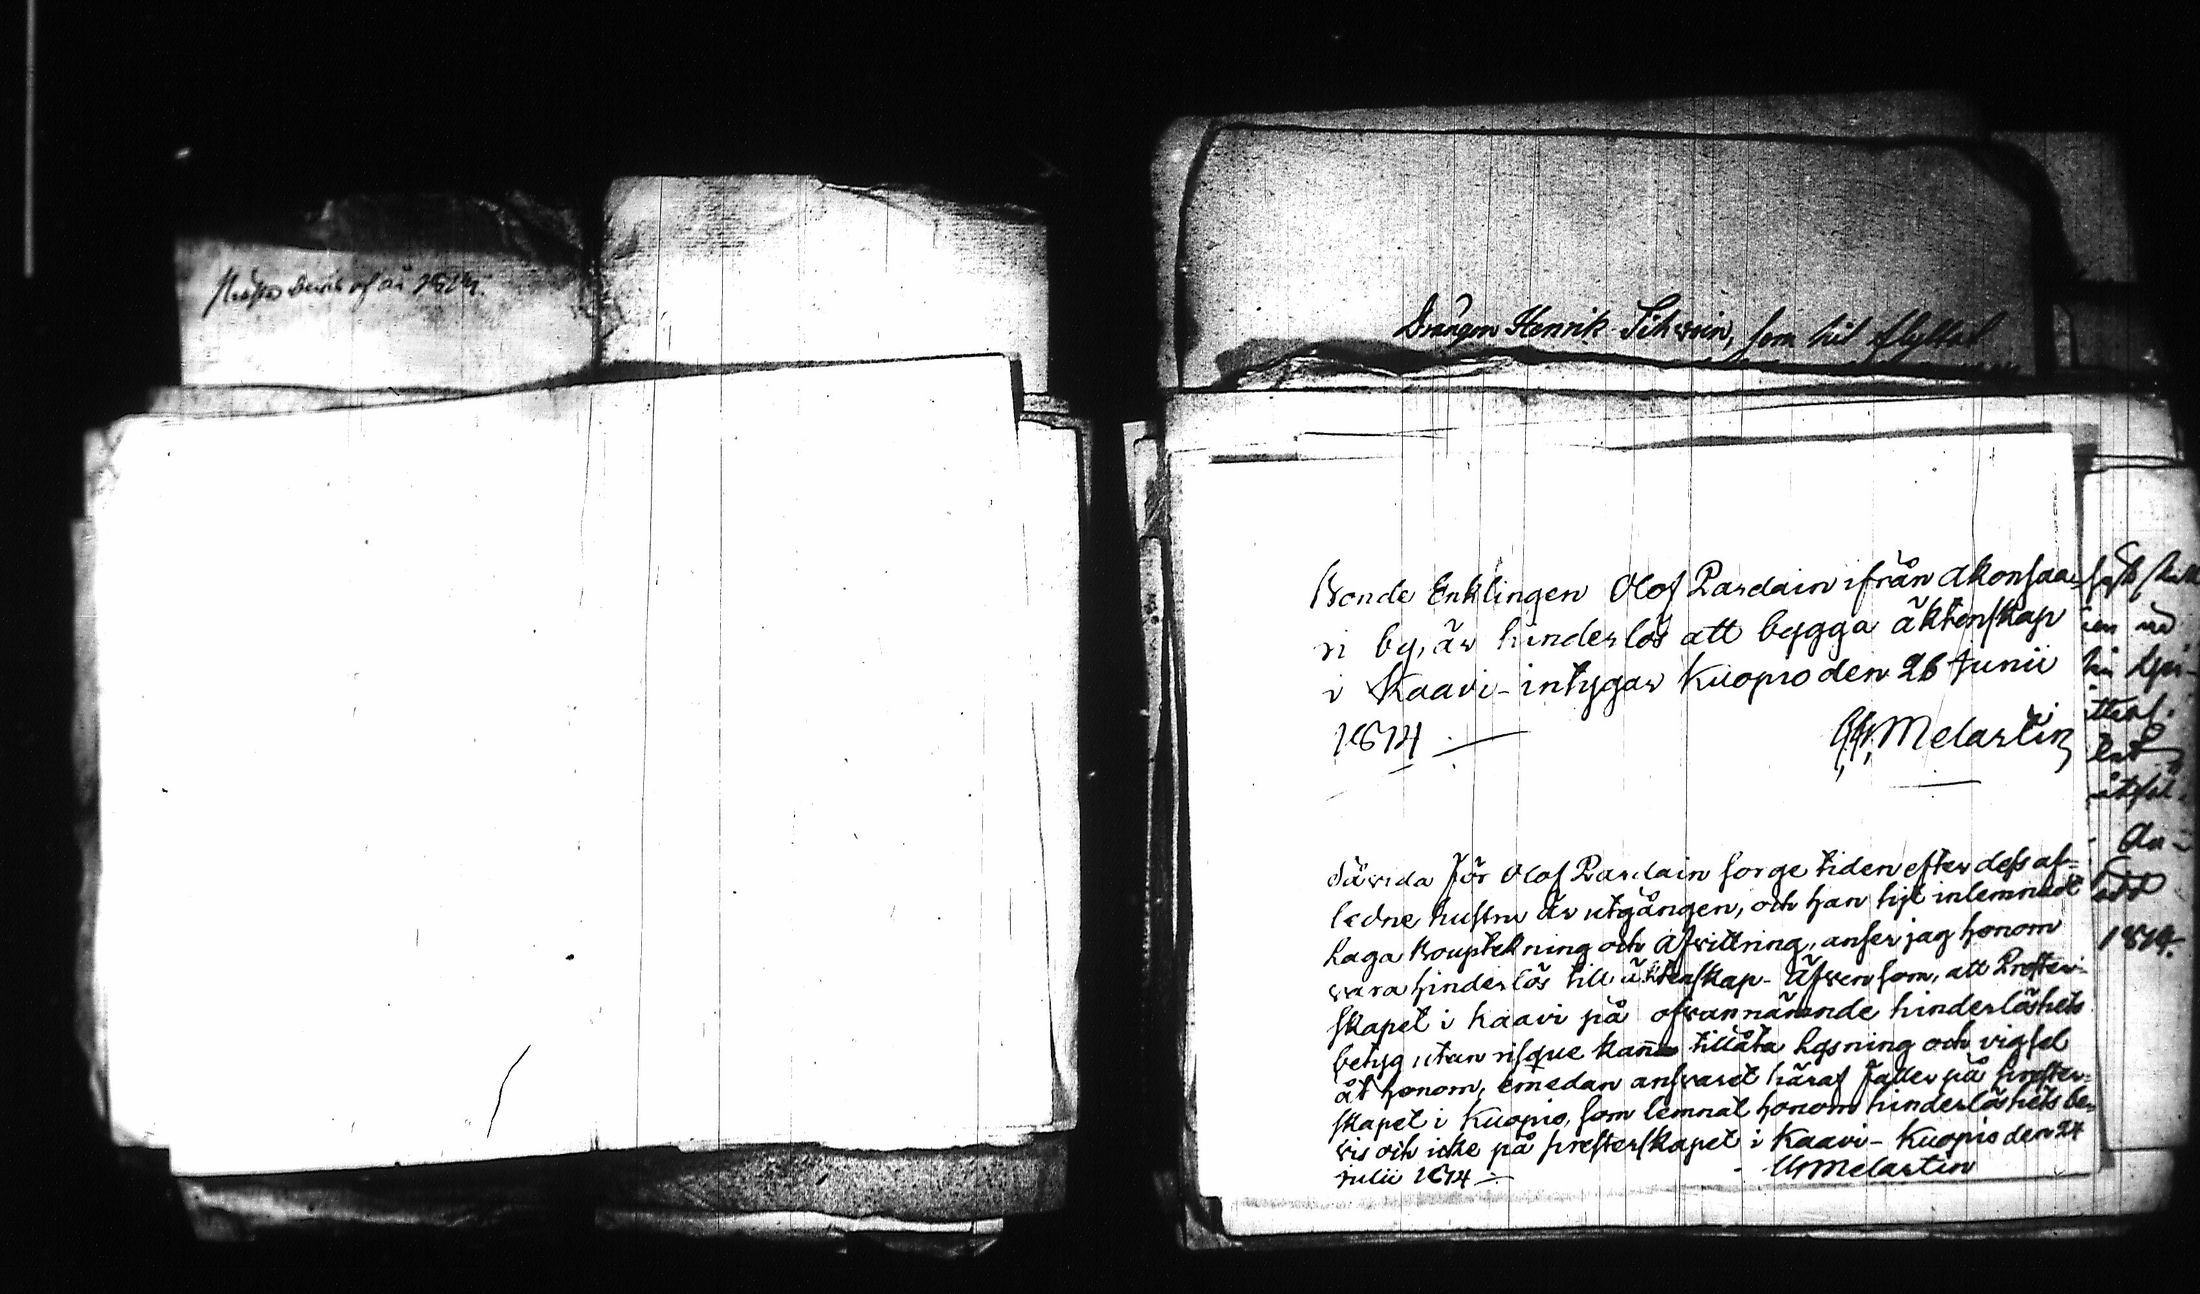 bevis af år 1814.
Drängen Henrik Sihvoin, som hit flyttat
Bonde Enklingen Olof Pardain ifrån Akonsaa-
ri by, är hinderlös att bygga äktenskap
i Kaavi - intygar Kuopio den 26 Junii
1814 . — Melartin
Såvida för Olof Pardain sorge tiden efter dess af-
ledne hustru är utgången, och han hijt inlemnadt
Laga Bouptekning och Afvittring, anser jag honom
vara hinderlös till äktenskap - Äfven som, att Prester-
skapet i Kaavi på ofvannämnde hinderlöshets
betyg utan risque kan tillåta lysning och vigsel
åt honom, emedan ansvaret häraf faller på prester-
skapet i Kuopio, som lemnat honom hinderlöshets be-
vis och icke på presterskapet i Kaavi - Kuopio den 24
Julii 1814 — Melartin
1814.